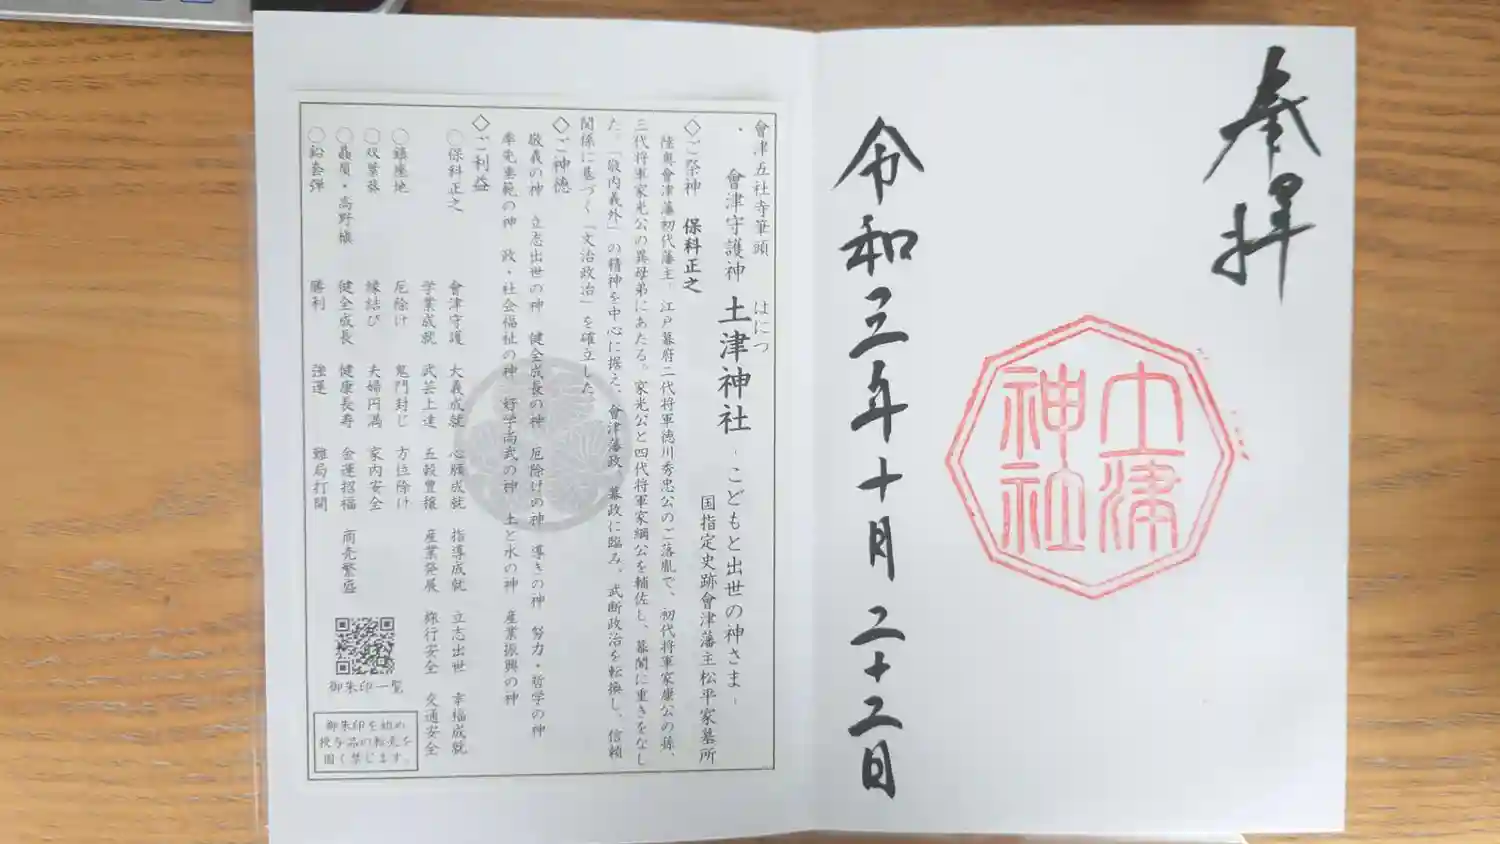 奉拝
土津
神社
令和三年十月二十二日
會津五社寺筆頭
會津守護神 土津神社 - こどもと出世の神さま -
はにつ
国指定史跡會津藩主松平家墓所
◇ご祭神 保科正之
陸奥會津藩初代藩主。江戸幕府二代将軍徳川秀忠公のご落胤で、初代将軍家康公の孫、
三代将軍家光公の異母弟にあたる。家光公と四代将軍家綱公を輔佐し、幕閣に重きをなし
た。「敬内義外」の精神を中心に据え、會津藩政、幕政に臨み。武断政治を転換し、信頼
関係に基づく「文治政治」を確立した
◇ご神徳
敬義の神 立志出世の神 健全成長の神 厄除けの神 導きの神 努力・哲学の神
率先垂範の神 政・社会福祉の神 好学尚武の神 土と水の神 産業振興の神
◇ご利益
〇保科正之 會津守護 大義成就 心願成就 指導成就 立志出世 幸福成就
学業成就 武芸上達 五穀豊穣 産業発展 旅行安全 交通安全
〇鎮座地 厄除け 鬼門封じ 方位除け
〇双葉葵 縁結び 夫婦円満 家内安全
〇贔屓・高野槇 健全成長 健康長寿 金運招福 商売繁盛
〇鉛壺弾 勝利 強運 難局打開
御朱印一覧
御朱印を始め
授与品の転売を
固く禁じます。